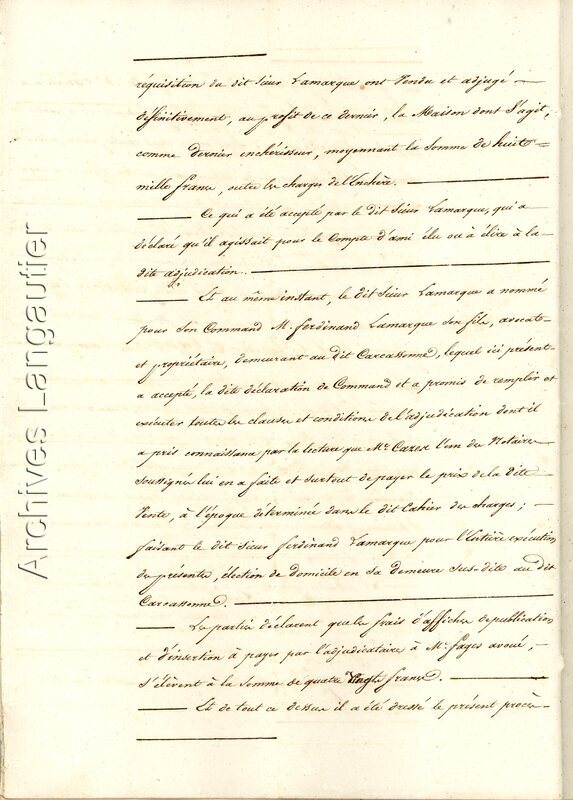 réquisition du dit Sieur Lamarque ont Vendu et adjugé
définitivement, au profit de ce dernier, la Maison dont S'agit,
comme dernier enchérisseur, moyennant la Somme de huit
mille francs, outre les charges de l'Enchère.
Ce qui a été accepté par le dit Sieur Lamarque, qui a
déclaré qu'il agissait pour le Compte d'ami élu ou à élire à la
dite adjudication.
Et au même instant, le dit Sieur Lamarque a nommé
pour Son Command M. Ferdinand Lamarque son fils, avocat
et propriétaire, demeurant au dit Carcassonne, lequel ici présent
a accepté, la dite déclaration de Command et a promis de remplir et
exécuter toutes les clauses et conditions de l'adjudication dont il
a pris connaissance par la lecture que Me. Cazes l'un des Notaires
Soussignés lui en a faite et surtout de payer le prix de la dite
Vente, à l'époque déterminée dans le dit Cahier des charges;
faisant le dit Sieur Ferdinand Lamarque pour l'Entière exécution
des présentes, élection de domicile en sa demeure Sus-dite au dit
Carcassonne.
Les parties déclarent que les frais d'affiches de publication
et d'insertion à payer par l'adjudicataire à Me. Fages avoué,
s'élèvent à la Somme de quatre Vingts francs.
Et de tout ce dessus il a été dressé le présent procès-
Archives Langautier